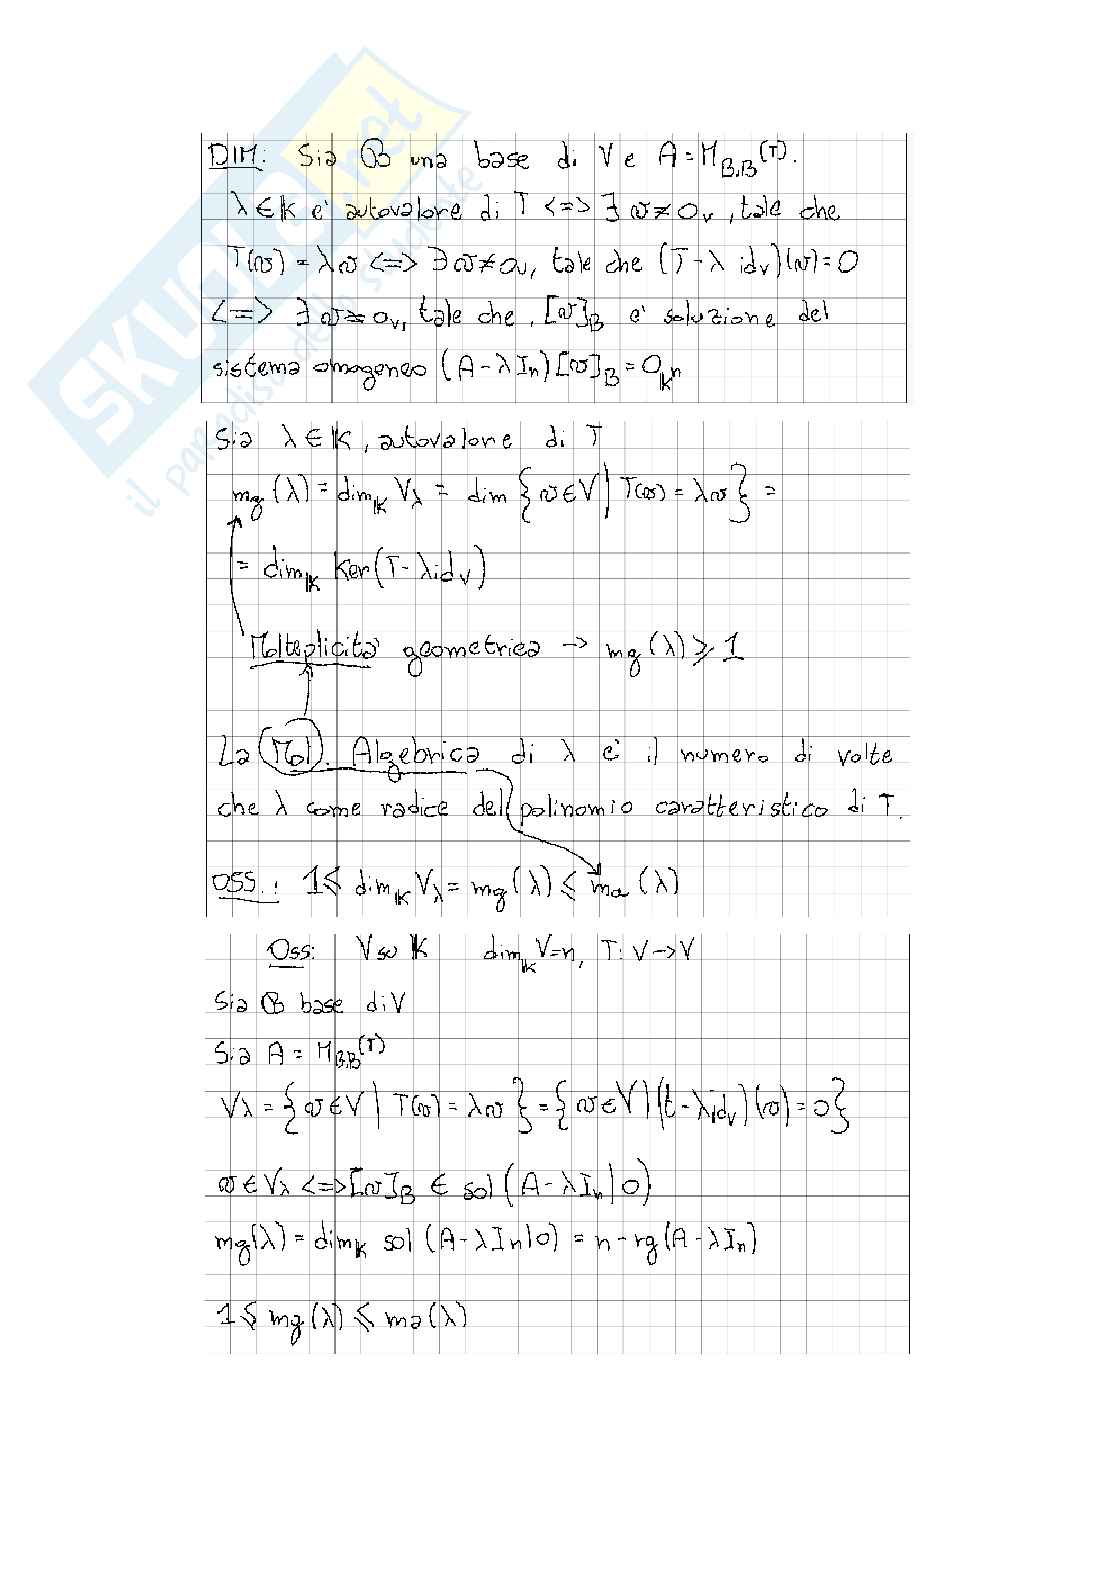 SKUOLA.net
il paradiso dello studente
DIM: Sia B una base di V e A = M_{B,B}(T).
λ ∈ K e' autovalore di T <=> ∃ v ≠ 0_V, tale che
T(v) = λv <=> ∃ v ≠ 0_V, tale che (T - λ id_V)(v) = 0
<=> ∃ v ≠ 0_V, tale che, [v]_B e' soluzione del
sistema omogeneo (A - λI_n)[v]_B = 0_{K^n}
Sia λ ∈ K, autovalore di T
mg(λ) = dim_K V_λ = dim {v ∈ V | T(v) = λv} =
= dim_K Ker(T - λid_V)
Molteplicita' geometrica → mg(λ) ⩾ 1
La Mol. Algebrica di λ e' il numero di volte
che λ come radice del polinomio caratteristico di T.
OSS.: 1 ⩽ dim_K V_λ = mg(λ) ⩽ ma(λ)
Oss: V su K dim_K V = n, T: V → V
Sia B base di V
Sia A = M_{B,B}(T)
V_λ = {v ∈ V | T(v) = λv} = {v ∈ V | (t - λid_V)(v) = 0}
v ∈ V_λ <=> [v]_B ∈ sol(A - λI_n | 0)
mg(λ) = dim_K sol(A - λI_n | 0) = n - rg(A - λI_n)
1 ⩽ mg(λ) ⩽ ma(λ)